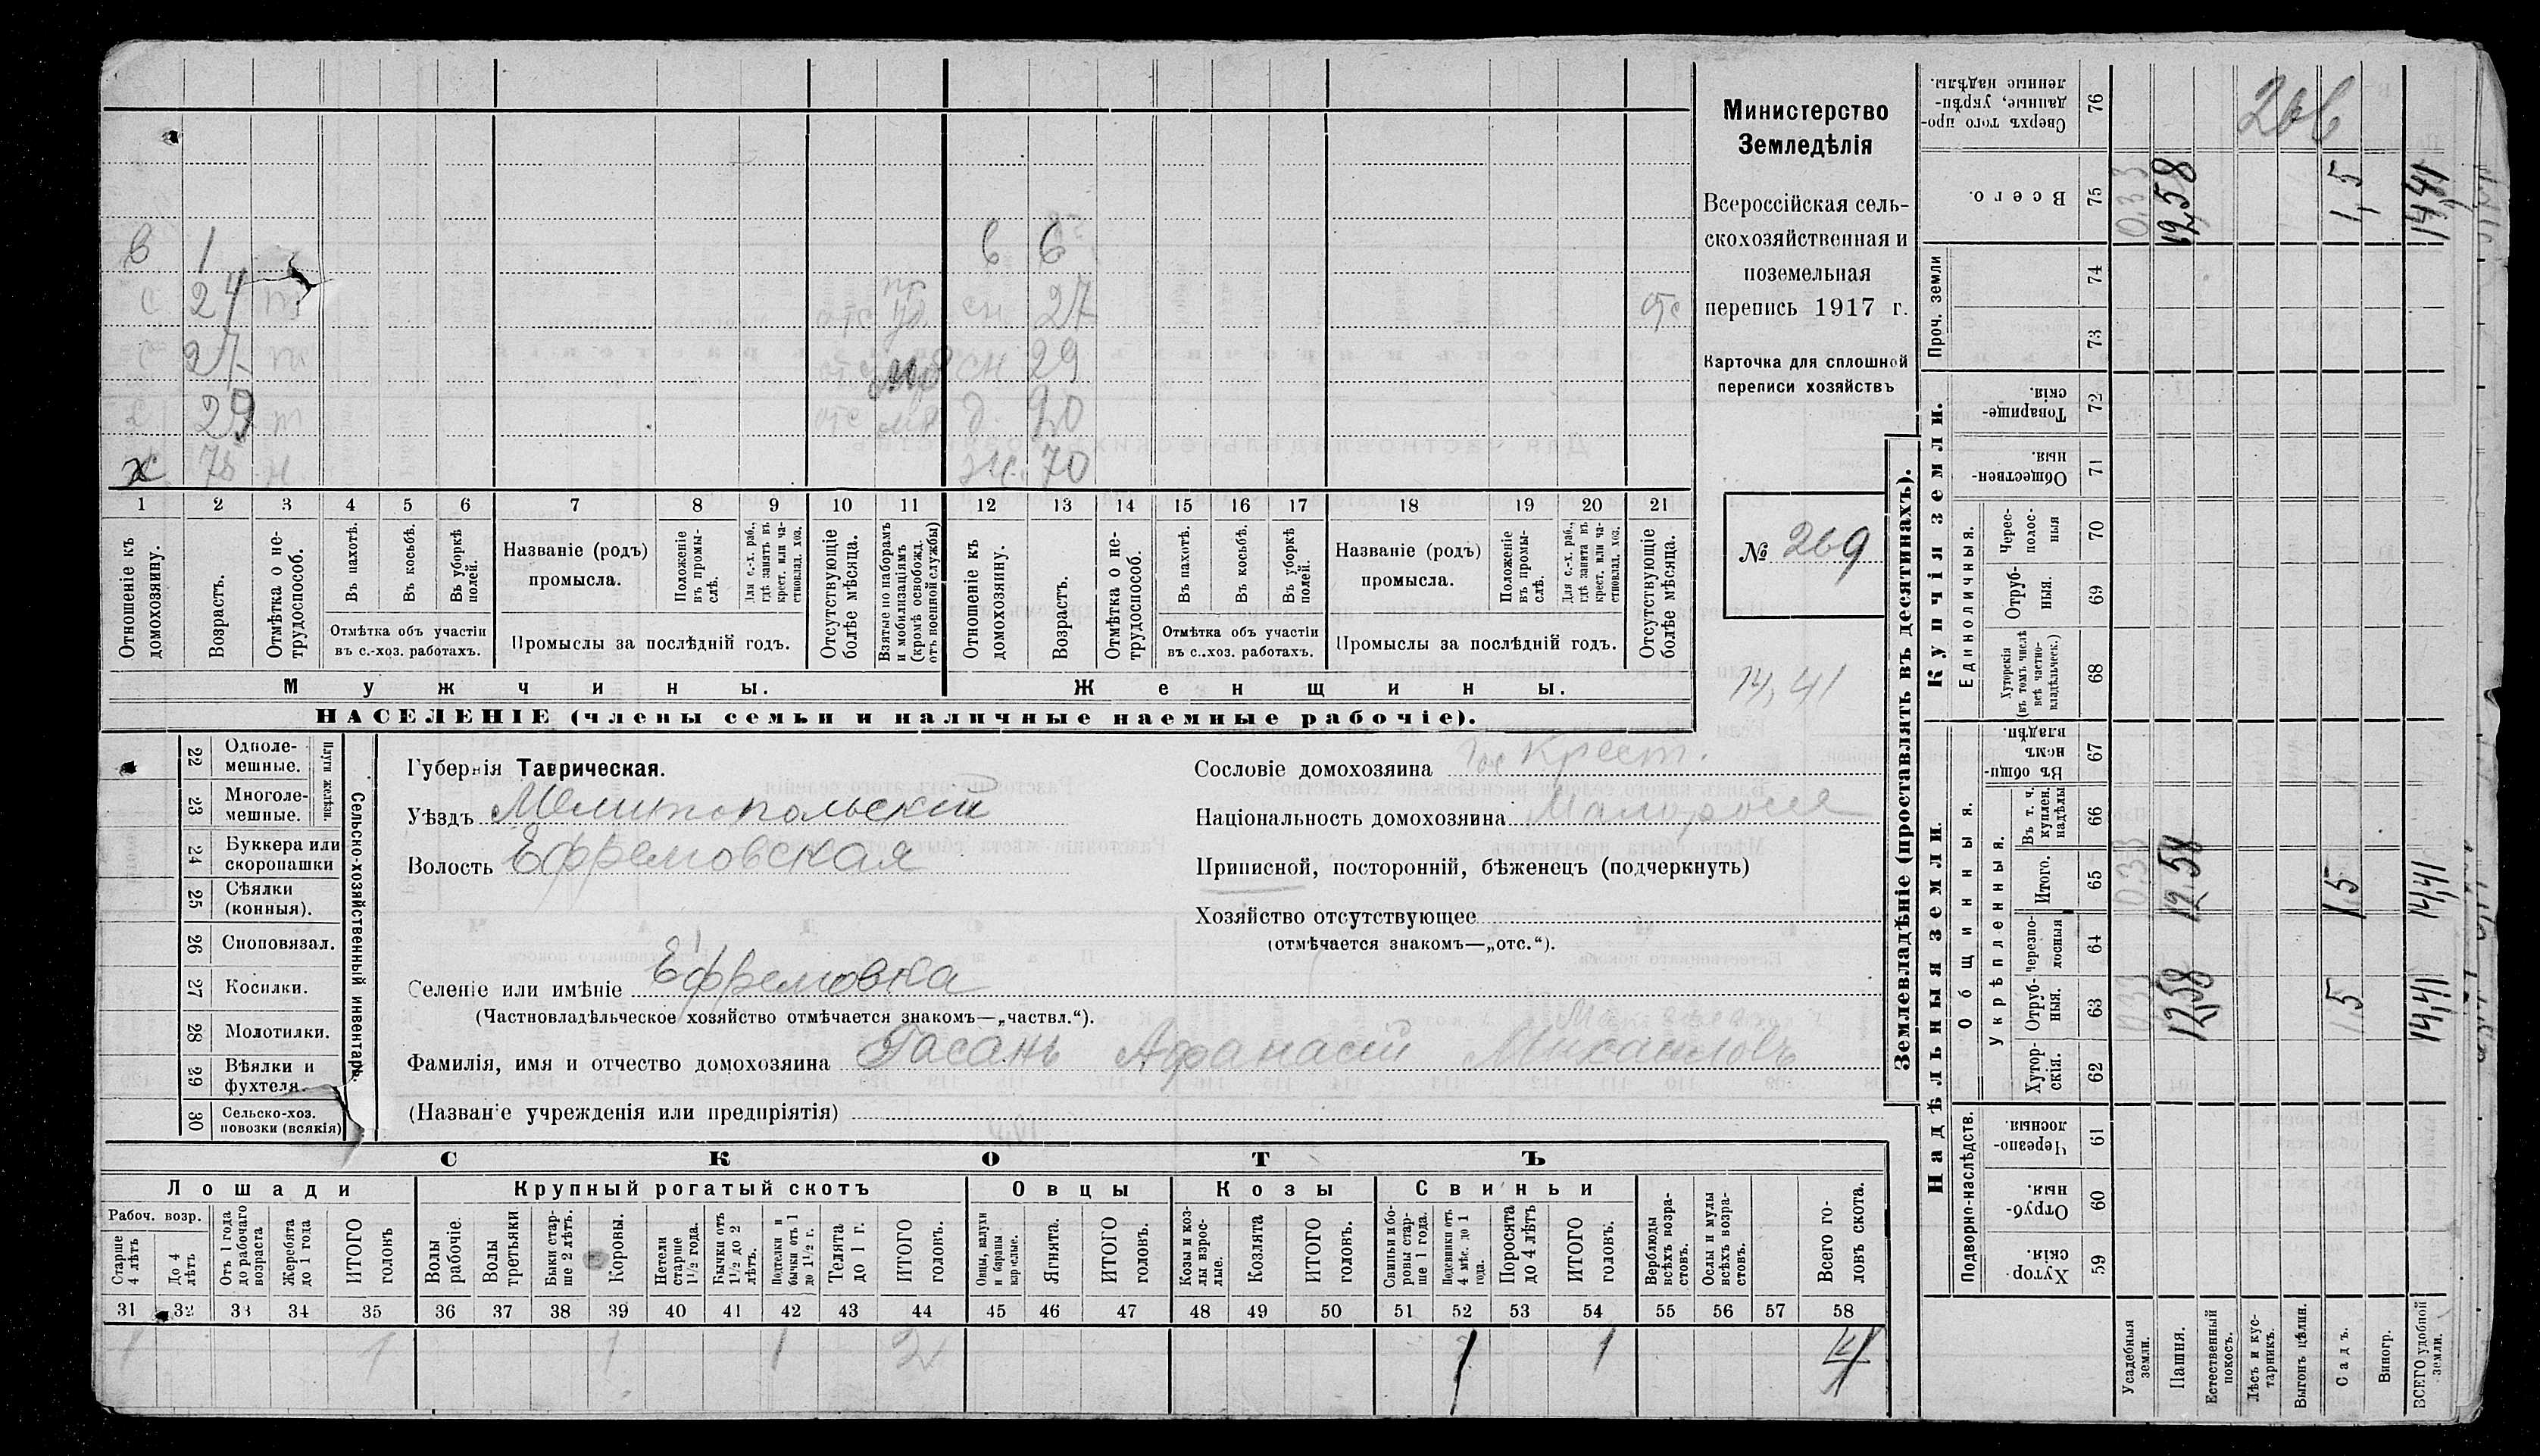 Министерство
Земледѣлія
Всероссійская сель-
скохозяйственная и
поземельная
перепись 1917 г.
Карточка для сплошной
переписи хозяйствъ
№ 269
14,41
в 1 в 6
с 24 отс сн 27 отс
с 27 сн 29
с 29 д. 20
х 75 н ж. 70
1 2 3 4 5 6 7 8 9 10 11 12 13 14 15 16 17 18 19 20 21
Отношеніе къ домохозяину.
Возрастъ.
Отмѣтка о не-трудоспособ.
Въ пахотѣ.
Въ косьбѣ.
Въ уборкѣ полей.
Отмѣтка объ участіи
въ с.-хоз. работахъ.
Названіе (родъ)
промысла.
Положеніе въ промы-слѣ.
Для с.-х. раб., гдѣ занятъ въ крест. или ча-стновлад. хоз.
Промыслы за послѣдній годъ.
Отсутствующіе болѣе мѣсяца.
Взятые по наборамъ и мобилизаціямъ (кромѣ освобожд. отъ военной службы)
Отношеніе къ домохозяину.
Возрастъ.
Отмѣтка о не-трудоспособ.
Въ пахотѣ.
Въ косьбѣ.
Въ уборкѣ полей.
Отмѣтка объ участіи
въ с..хоз. работахъ.
Названіе (родъ)
промысла.
Положеніе въ промы-слѣ.
Для с.-х. раб., гдѣ занята въ крест. или ча-стновлад. хоз.
Промыслы за послѣдній годъ.
Отсутствующіе болѣе мѣсяца.
Мужчины. Женщины.
НАСЕЛЕНІЕ (члены семьи и наличные наемные рабочіе).
22 Одполе-мешные.
23 Многоле-мешные.
Плуги желѣзн.
24 Буккера или скоропашки
25 Сѣялки (конныя).
26 Сноповязал.
27 Косилки.
28 Молотилки.
29 Вѣялки и фухтеля.
30 Сельско-хоз. повозки (всякія)
Сельско-хозяйственный инвентарь.
Губернія Таврическая.
Уѣздъ Мелитопольскій
Волость Ефремовская
Селеніе или имѣніе Ефремовка
(Частновладѣльческое хозяйство отмѣчается знакомъ—„частвл.“).
Фамилія, имя и отчество домохозяина Гасанъ Афанасій Михайловъ
(Названіе учрежденія или предпріятія)
Сословіе домохозяина Крест.
Національность домохозяина Малороссъ
Приписной, посторонній, бѣженецъ (подчеркнуть)
Хозяйство отсутствующее
(отмѣчается знакомъ—„отс.“).
СКОТЪ
Лошади Крупный рогатый скотъ Овцы Козы Свиньи
Рабоч. возр.
Старше 4 лѣтъ
До 4 лѣтъ
Отъ 1 года до рабочаго возраста
Жеребята до 1 года
ИТОГО головъ
Волы рабочіе.
Волы третьяки
Быки стар-ше 2 лѣтъ.
Коровы.
Нетели старше 1½ года.
Бычки отъ 1½ до 2 лѣтъ.
Подтелки и бычки отъ 1 до 1½ г.
Телята до 1 г.
ИТОГО головъ.
Овцы, валухи и бараны взрослые.
Ягнята.
ИТОГО головъ.
Козы и коз-лы взрос-лые.
Козлята
ИТОГО головъ.
Свиньи и бо-ровы стар-ше 1 года.
Подсвинки отъ 4 мѣс. до 1 года.
Поросята до 4 лѣтъ
ИТОГО головъ.
Верблюды всѣхъ возра-стовъ.
Ослы и мулы всѣхъ возра-стовъ.
Всего го-ловъ скота.
31 32 33 34 35 36 37 38 39 40 41 42 43 44 45 46 47 48 49 50 51 52 53 54 55 56 57 58
1 1 1 1 2 1 1 4
Землевладѣніе (проставлять въ десятинахъ).
Купчія земли.
Надѣльныя земли.
Сверхъ того про-данные, укрѣп-ленные надѣлы. 76
Всего. 75 0.33 12,58 1,5 14,41
Проч. земли 74 73
Товарище-скія. 72
Обществен-ныя. 71
Единоличныя.
Черес-полос-ныя 70
Отруб-ныя. 69
Хуторскія (въ томъ числѣ всѣ частно-владѣльческ.) 68
Общинныя.
Въ общи-номъ владѣн. 67
Укрѣпленныя.
Въ т. ч. куплен. надѣлы 66
Итого. 65 0.33 12,58 1,5 14,41
Черезпо-лосныя 64
Отруб-ныя. 63 0.33 12,58 1,5 14,41
Хутор-скія. 62
Подворно-наслѣдств.
Черезпо-лосныя. 61
Отруб-ныя. 60
Хутор-скія. 59
Усадебныя земли.
Пашня.
Естественный покосъ.
Лѣсъ и кус-тарникъ.
Выгонъ цѣлин.
Садъ.
Виногр.
ВСЕГО удобной земли.